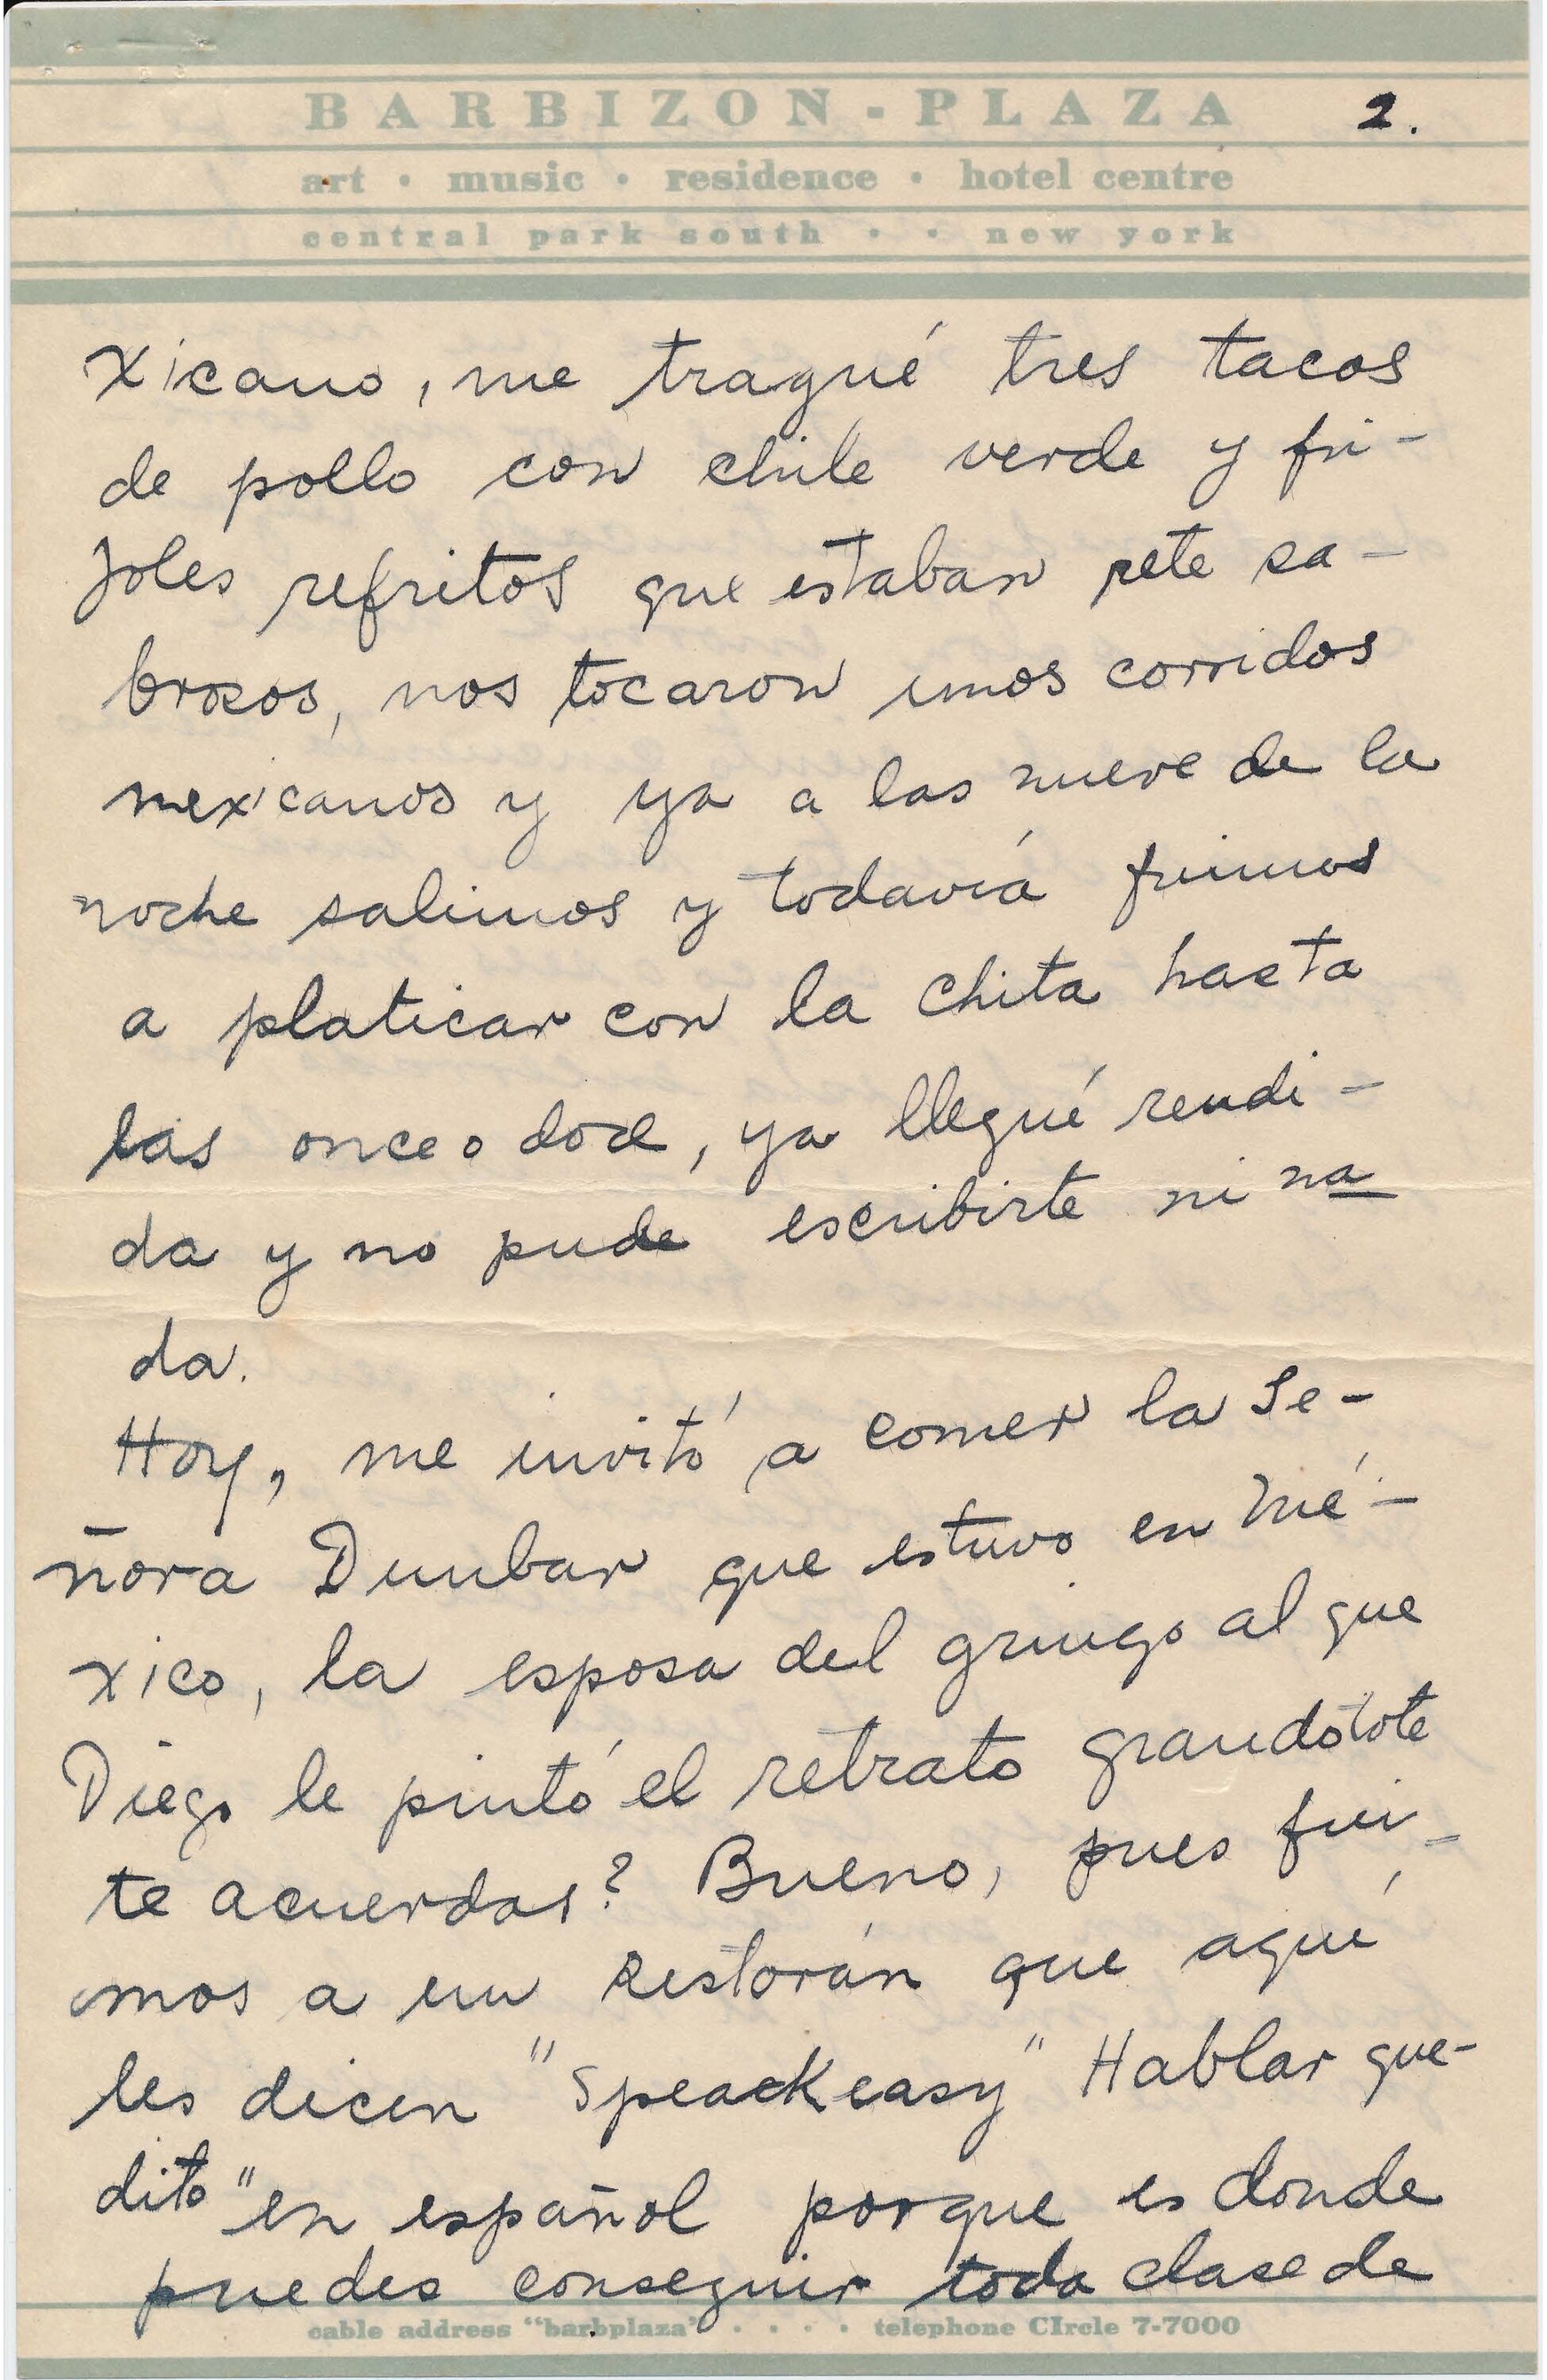 BARBIZON-PLAZA 2.
art • music • residence • hotel centre
central park south • • new york
xicano, me tragué tres tacos
de pollo con chile verde y fri-
joles refritos que estaban rete sa-
brosos, nos tocaron unos corridos
mexicanos y ya a las nueve de la
noche salimos y todavía fuimos
a platicar con la Chita hasta
las once o doce, ya llegué rendi-
da y no pude escribirte ni na
da.
Hoy, me invitó a comer la Se-
ñora Dunbar que estuvo en Mé-
xico, la esposa del gringo al que
Diego le pintó el retrato grandótote
te acuerdas? Bueno, pues fui-
mos a un Restorán que aquí
les dicen "Speackeasy" Hablar que-
dito" en español porque es donde
puedes conseguir toda clase de
cable address "barbplaza" . . . . telephone CIrcle 7-7000